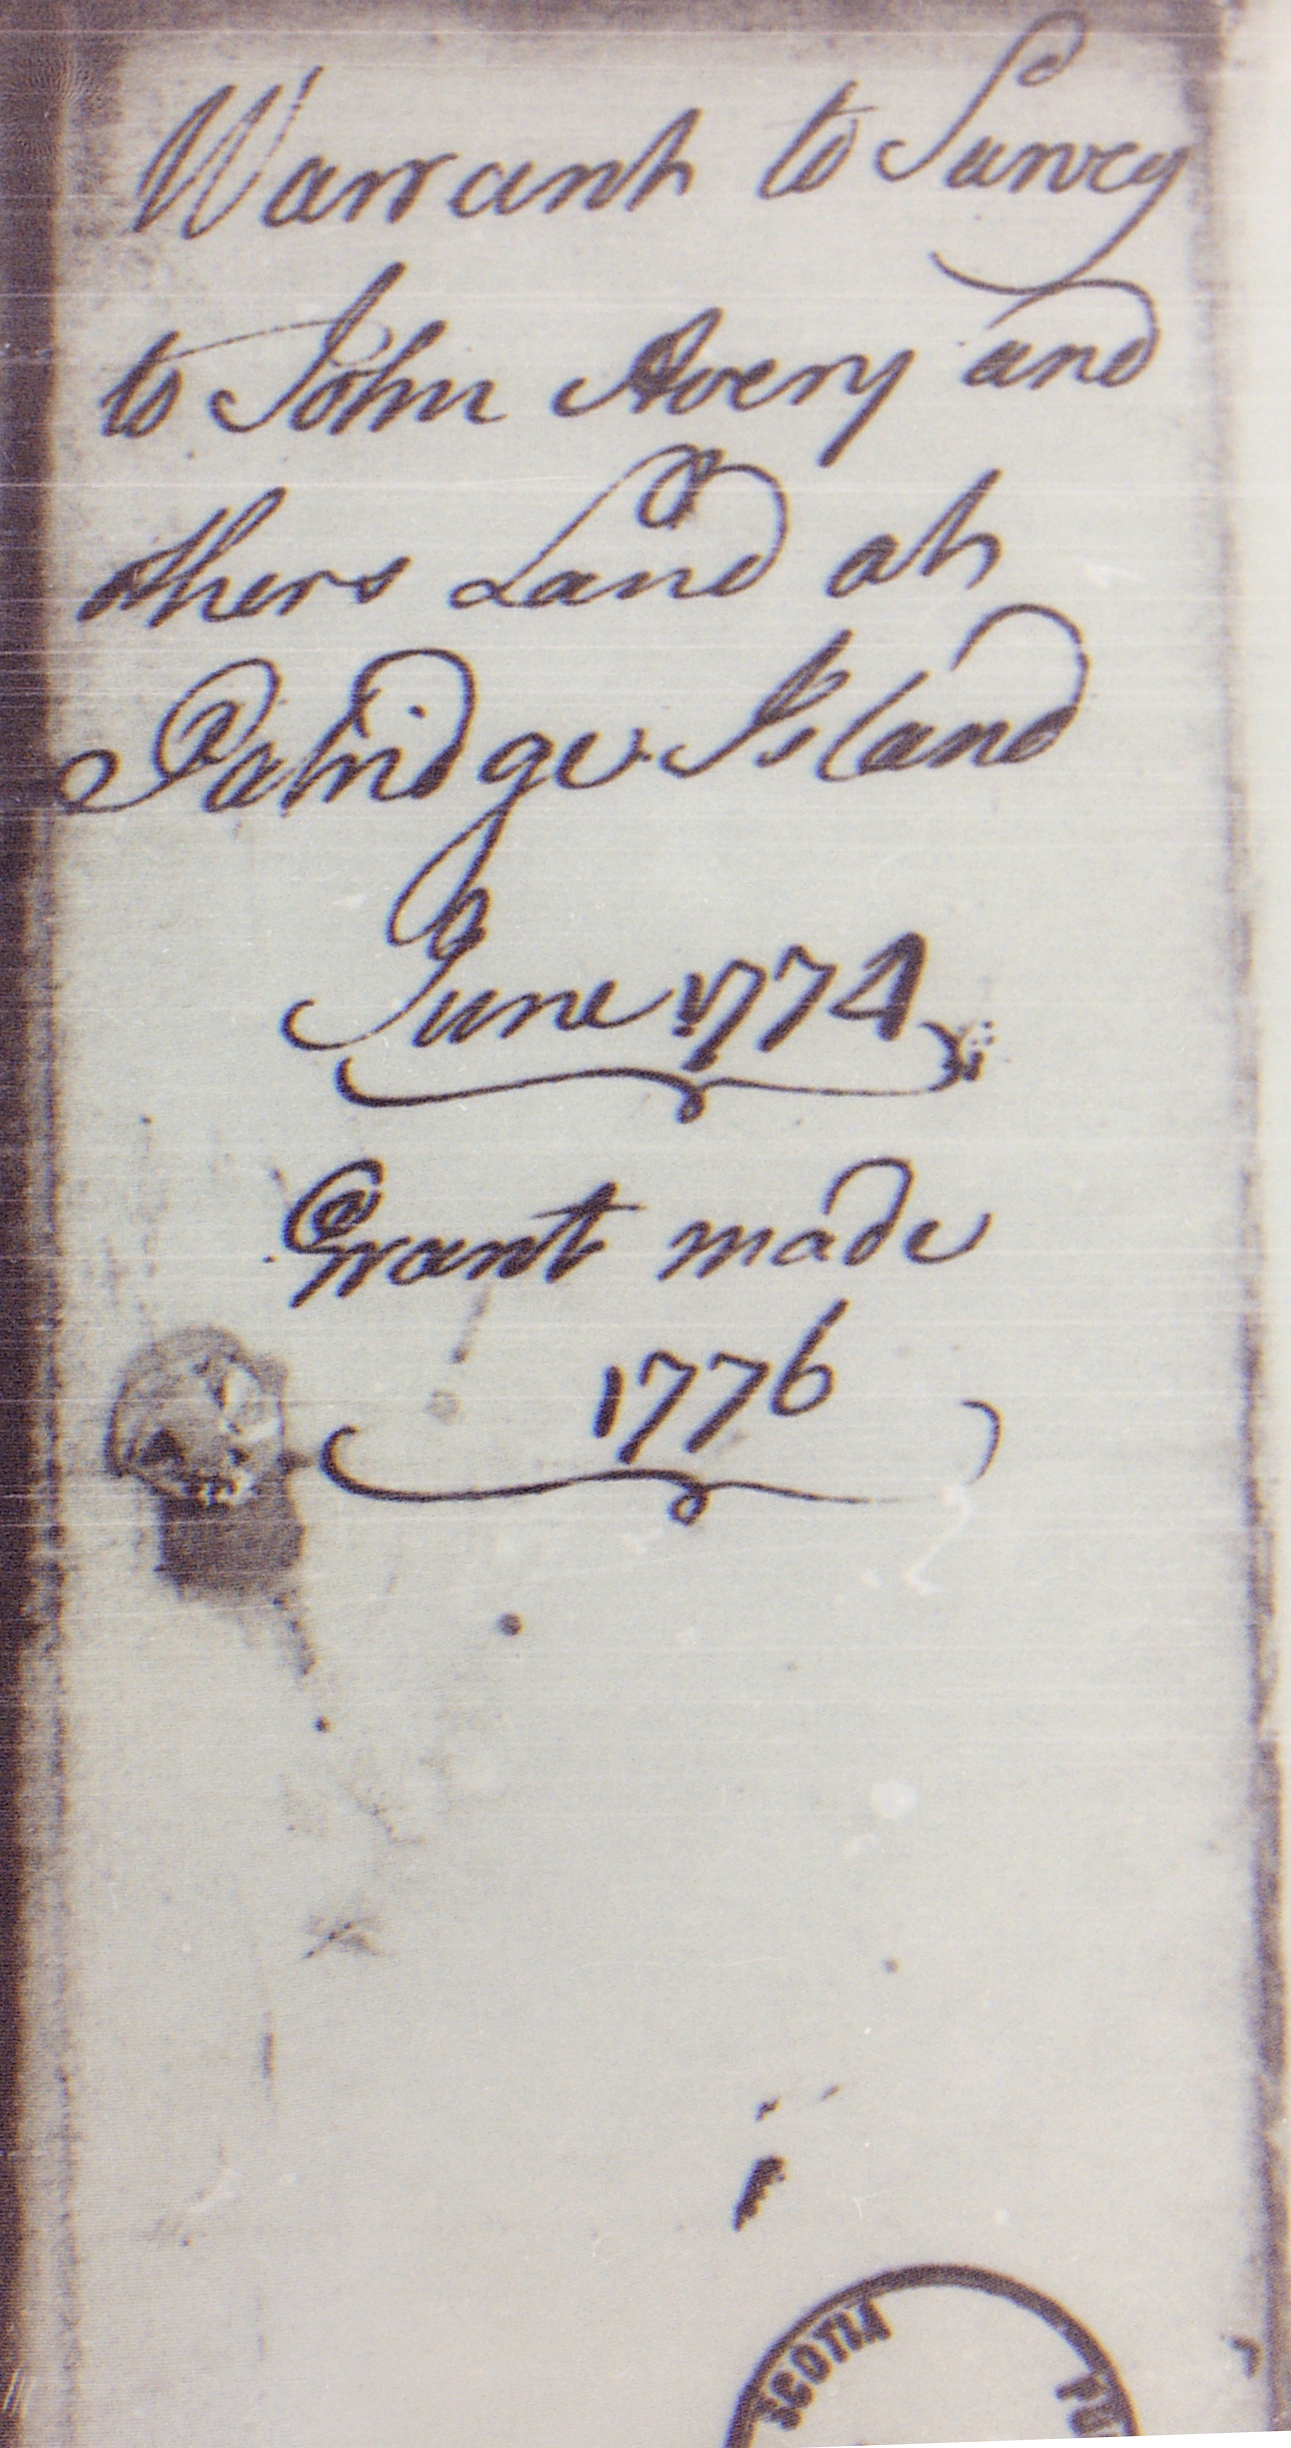 Warrant to Survey
to John Avery and
others Land at
Patridge Island
June 1774
Grant made
1776
SCOTIA PU